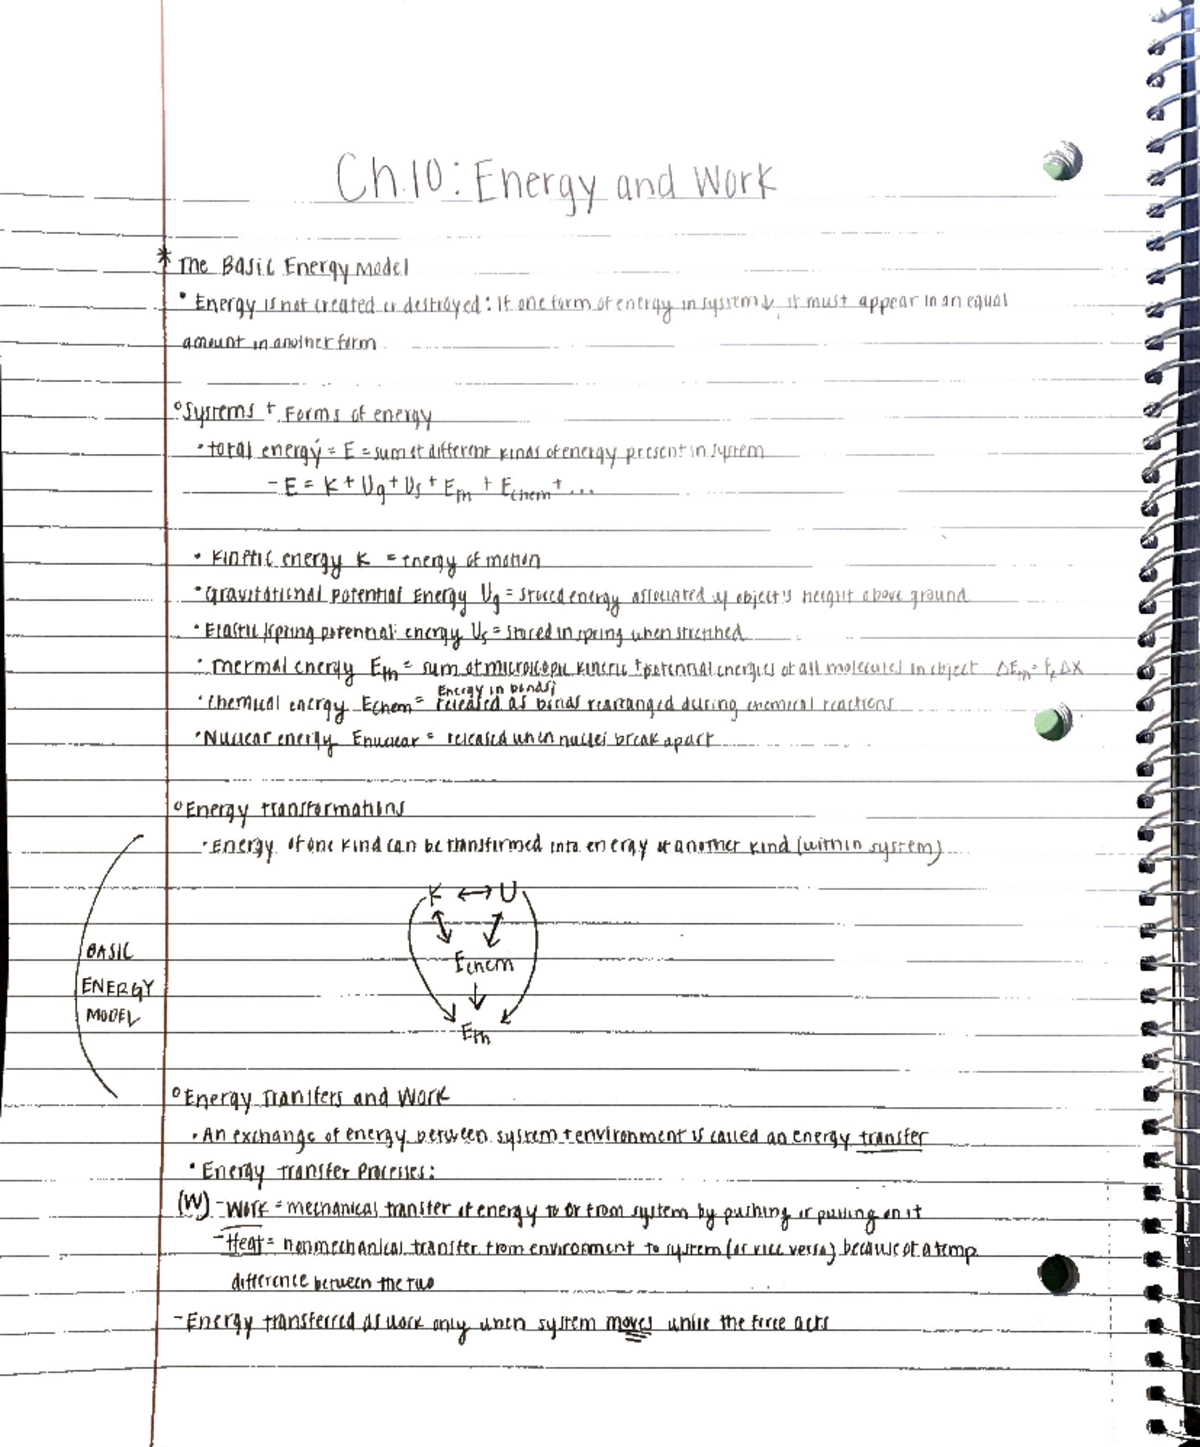 Ch.10: Energy and Work
* The Basic Energy Model
• Energy is not created or destroyed: if one form of energy in system ↓, it must appear in an equal
amount in another form
° Systems + Forms of energy
• total energy = E = sum of different kinds of energy present in system
- E = K + Ug + Us + Eth + Echem + ...
• Kinetic energy K = energy of motion
• Gravitational Potential Energy Ug = stored energy associated w/ object's height above ground
• Elastic/spring potential energy Us = stored in spring when stretched
• Thermal energy Eth = sum of microscopic kinetic + potential energies of all molecules in object ΔEth = fk Δx
Energy in bonds;
• Chemical energy Echem = released as bonds rearranged during chemical reactions
• Nuclear energy Enuclear = released when nuclei break apart
° Energy transformations
• Energy of one kind can be transformed into energy of another kind (within system)
K ↔ U
Echem
Eth
BASIC
ENERGY
MODEL
° Energy Transfers and Work
• An exchange of energy between system + environment is called an energy transfer
• Energy Transfer Processes:
(W) - Work = mechanical transfer of energy to or from system by pushing or pulling on it
- Heat = nonmechanical transfer from environment to system (or vice versa) because of a temp
difference between the two
- Energy transferred as work only when system moves while the force acts